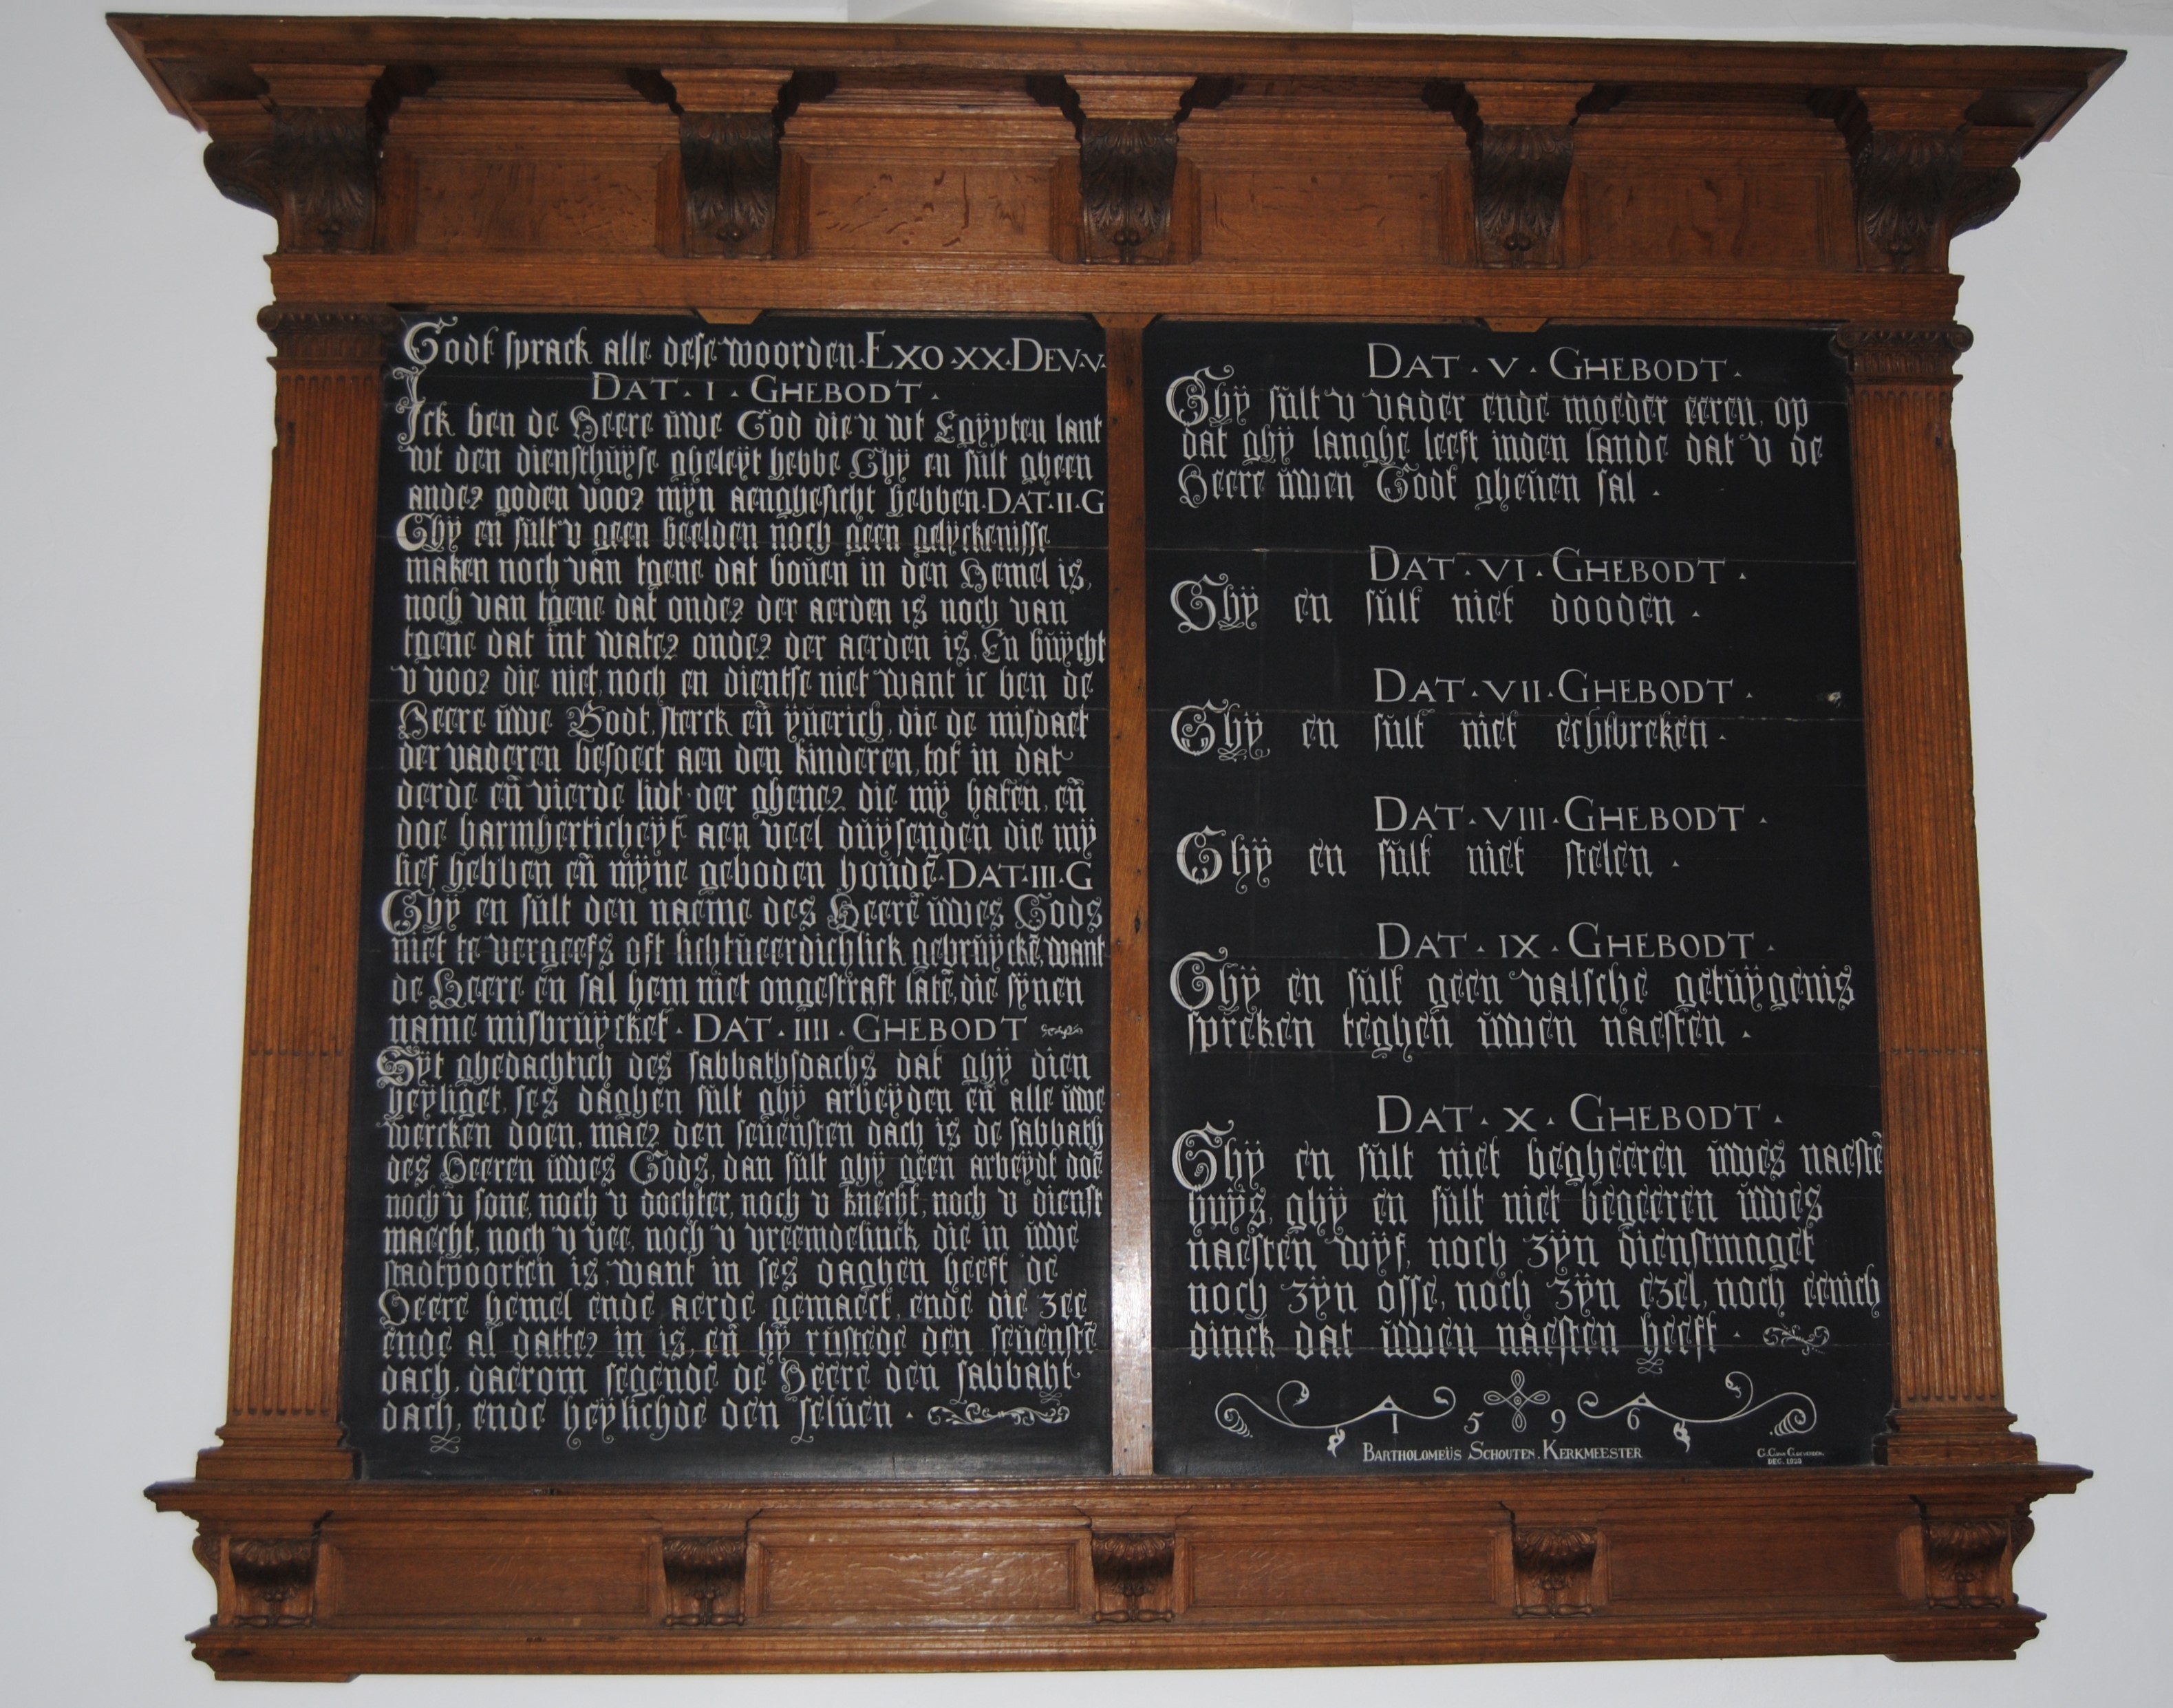 Godt sprack alle dese woorden. EXO·XX·DEV·V·
DAT · I · GHEBODT ·
Ick ben de Heere uwe God die u wt Egÿpten lant
wt den diensthuÿse gheleÿt hebbe Ghÿ en sult gheen
ander goden voor mÿn aenghesicht hebben·DAT·II·G
Ghÿ en sult u geen beelden noch geen gelÿckenisse
maken noch van tgene dat boven in den Hemel is,
noch van tgene dat onder der aerden is noch van
tgene dat int water onder der aerden is. En buÿcht
v voor die niet, noch en dientse niet want ic ben de
Heere uwe Godt, sterck eñ ÿverich, die de misdaet
der vaderen besoect aen den kinderen, tot in dat
derde eñ vierde lidt der ghener die mÿ haten, eñ
doe barmherticheÿt aen veel duÿsenden die mÿ
lief hebben eñ mÿne geboden houdẽ·DAT·III·G
Ghÿ en sult den naeme des Heerẽ uwes Gods
niet te vergeefs oft lichtveerdichlick gebruÿckẽ, want
de Heere en sal hem niet ongestraft latẽ, die sÿnen
name misbruÿcket · DAT · IIII · GHEBODT
Sÿt ghedachtich des sabbathsdachs dat ghÿ dien
heÿliget, ses daghen sult ghÿ arbeÿden eñ alle uwe
wercken doen, maer den sevensten dach is de sabbath
des Heeren uwes Gods, dan sult ghÿ geen arbeÿdt doẽ
noch v sone, noch v dochter, noch v knecht, noch v dienst
maecht, noch v vee, noch v vreemdelinck die in uwe
stadtpoorten is, want in ses daghen heeft de
Heere hemel ende aerde gemaect, ende die zee
ende al datter in is, eñ hÿ rustede den sevenstẽ
dach, daerom segende de Heere den sabbaht
dach, ende heÿlichde den selven ·
DAT · V · GHEBODT ·
Ghÿ sult v vader ende moeder eeren, op
dat ghÿ langhe leeft inden lande dat v de
Heere uwen Godt gheven sal ·
DAT · VI · GHEBODT ·
Ghÿ en sult niet dooden ·
DAT · VII · GHEBODT ·
Ghÿ en sult niet echtbreken ·
DAT · VIII · GHEBODT ·
Ghÿ en sult niet stelen ·
DAT · IX · GHEBODT ·
Ghÿ en sult geen valsche getuÿgenis
spreken teghen uwen naesten ·
DAT · X · GHEBODT ·
Ghÿ en sult niet begheeren uwes naestẽ
huÿs, ghÿ en sult niet begeeren uwes
naesten wÿf, noch zÿn dienstmaget
noch zÿn osse, noch zÿn ezel, noch eenich
dinck dat uwen naesten heeft ·
1 5 9 6
BARTHOLOMEÜS SCHOUTEN. KERKMEESTER
DEC. 1923